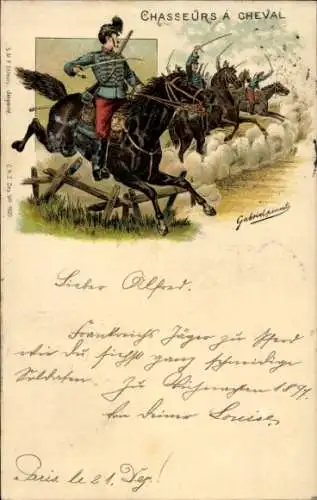 CHASSEURS À CHEVAL
Lieber Alfred.
Frankreichs Jäger zu Pferd
wie Du siehst ganz schneidige
Soldaten. Zu Weihnachten 1897
von Deiner Louise.
Paris le 21. Dez!